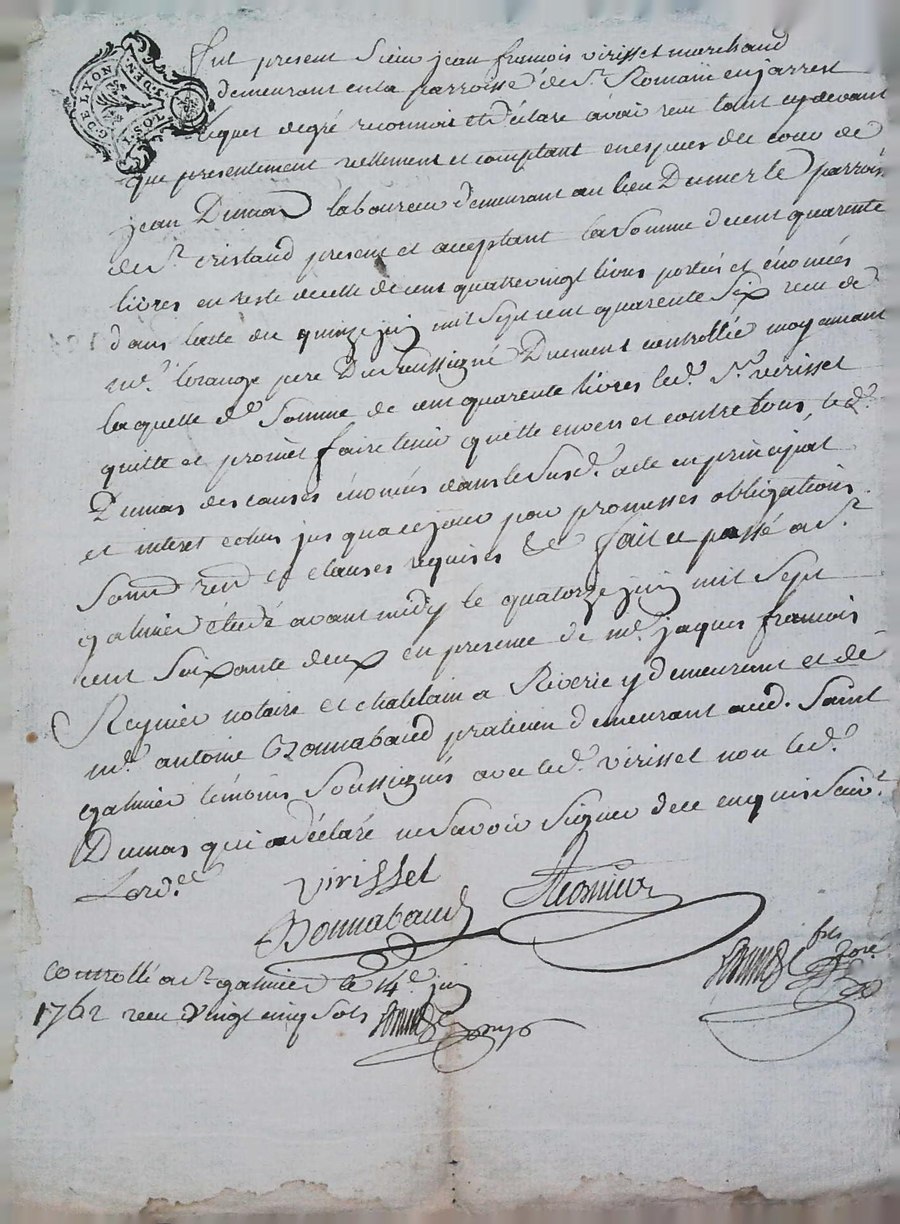 G. DE LYON
SOLS 3. DEN.
Fut present Sieur jean francois virisset marchand
demeurant en la parroisse de St. Romain en jarrest
lequel de gré reconnoit et déclare avoir reçu tant cy devant
que presentement réellement et comptant en espèces du cours de
jean Dumas laboureur demeurant au lieu Dumerle parrois
de St. cristaud present et acceptant la somme de cent quarente
livres en reste de celle de cent quatre vingt livres portés et énoncés
dans lacte du quinze juin mil sept cent quarente six reçu de
me. lorange pere Du soussigné Duement controllée moyenant
laquelle de. somme de cent quarente livres led. Sr. virisset
quitte et promet faire tenir quitte envers et contre tous, le d.
Dumas des causes énoncées dans le susd. acte en principal
et interet echus jusqua ce jour par promesses obligations
soumd. rend. et clauses requises &c fait et passé a St.
galmier étude avant midy le quatorze juin mil sept
cent soixante deux en presence de me. jaques francois
Reynier notaire et chatelain a Riverie y demeurant et de
me. antoine Bonnabaud praticien demeurant aud. Saint
galmier témoins soussignés avec led. virisset non led.
Dumas qui a déclaré ne savoir signer de ce enquis suiv.t
Lord.ce
virisset
Bonnabaud Reynier
controllé a St. galmier le 14e. juin
1762 reçu vingt cinq sols